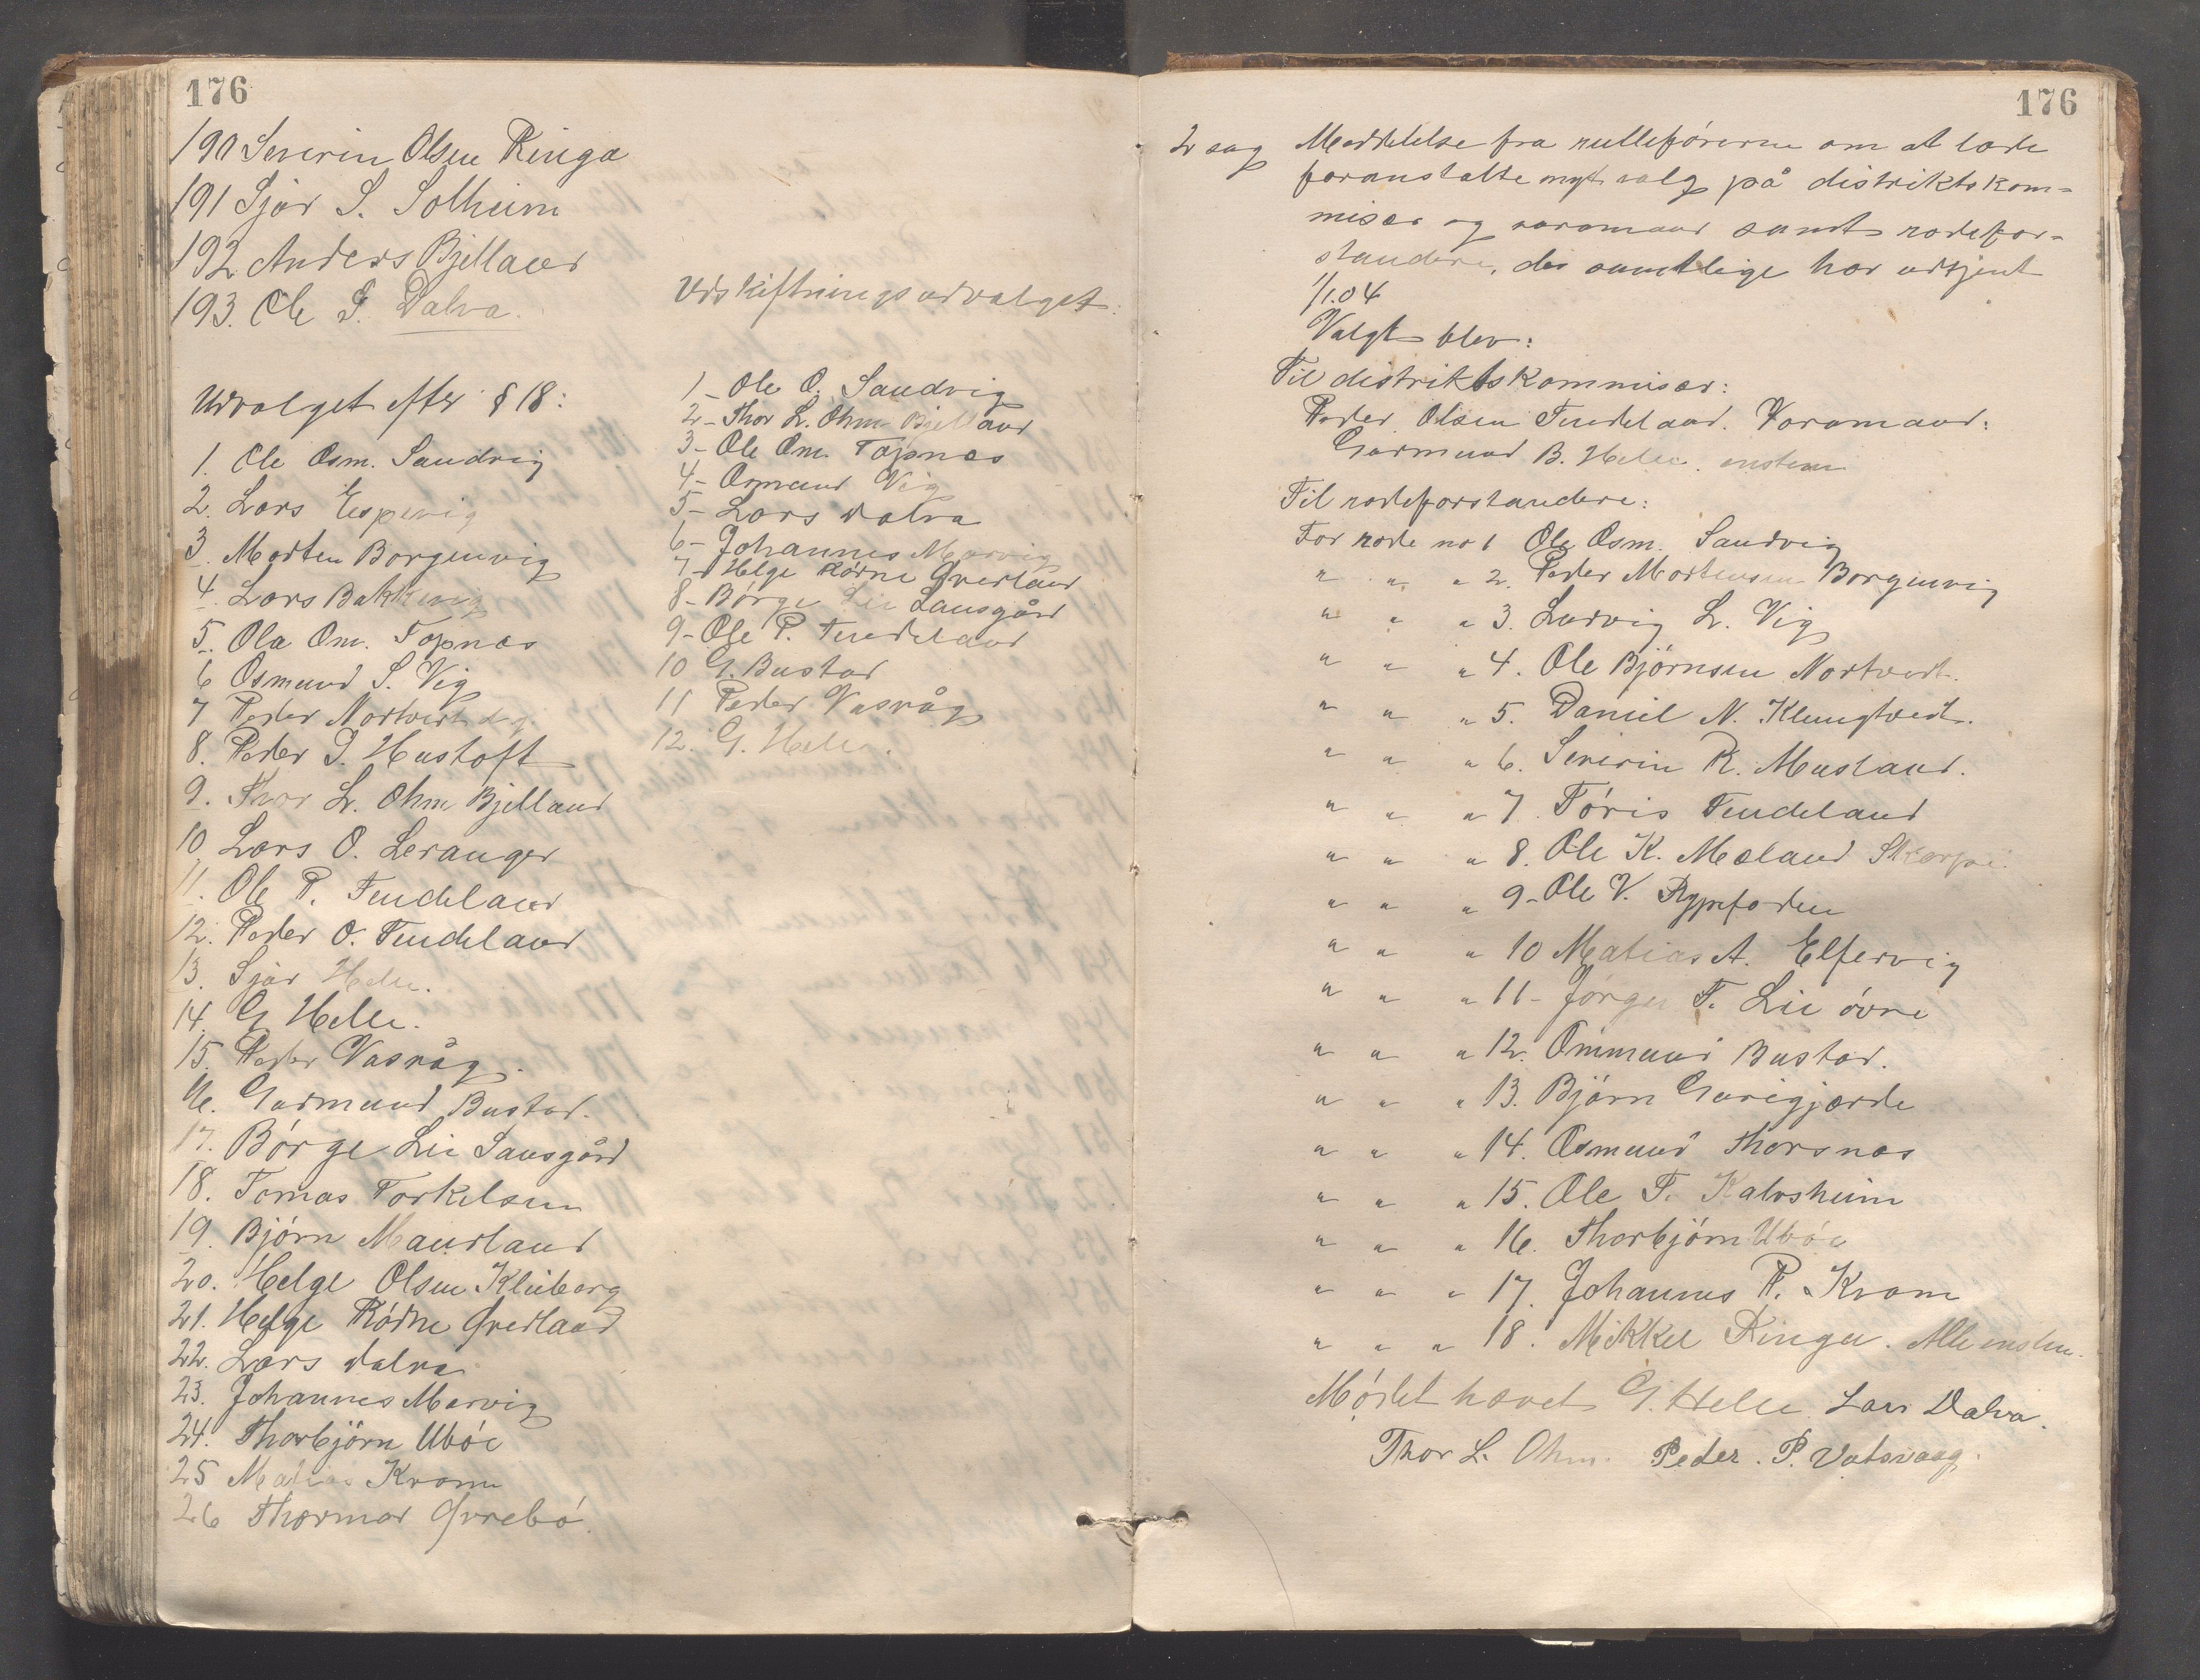 176
190 Severin Olsen Ringa
191 Sjør S. Solheim
192 Anders Bjelland
193. Ole G. Dalva.
Udvalget efter § 18:
1. Ole Osm. Sandvig
2. Lars Espevig
3. Morten Borgenvig
4. Lars Bakkevig
5. Ola Om. Topnæs
6 Osmund S. Vig
7 Peder Nortveit
8. Peder J. Hustoft
9. Thor L. Ohm Bjelland
10 Lars O. Leranger
11. Ole P. Tendeland
12. Peder O. Tendeland
13. Sjør Helle.
14. G Helle.
15. Peder Vasvåg.
16. Garmund Bustad.
17. Børge Lie Sausgård
18. Tomas Torkelsen
19. Bjørn Maurland
20. Helge Olsen Kleiberg
21. Helge Rødne Øverland
22. Lars Dalva
23. Johannes Marvig
24. Thorbjörn Ubøe
25 Matias Kvam
26 Thormor Øvrebø.
Udskiftningsudvalget:
1- Ole O. Sandvig
2- Thor L. Ohm Bjelland
3- Ole Om. Topnæs
4- Osmund Vig
5- Lars Dalva
6- Johannes Marvig
7- Helge Rødne Øverland
8- Børge Lie Sausgård
9- Ole P. Tendeland
10 G. Bustad
11 Peder Vasvåg
12. G. Helle.
176
2 sag Meddelelse fra rulleførerne om at lade
foranstalte nyt valg på distriktskom-
misær og varamand samt rodefor-
standere, der samtlige har udtjent
1/1.04
Valgt blev:
Til distriktskommisær:
Peder Olsen Tendeland. Varamand:
Garmund B. Helle. enstem
Til rodeforstandere:
For rode no 1 Ole Osm. Sandvig
" " " 2. Peder Mortensen Borgenvig
" " " 3. Ludvig L. Vig
" " " 4. Ole Bjørnsen Nortveit.
" " " 5. Daniel N. Klungtveit.
" " " 6. Severin R. Mæsland.
" " " 7 Tøris Tendeland
" " " 8. Ole K. Mæland Skarpe.
" " " 9- Ole V. Rypefoden
" " " 10 Matias A. Elfervig
" " " 11- Jørgen T. Lie øvre
" " " 12. Ommund Bustad.
" " " 13. Bjørn Garigjærde
" " " 14. Osmund Thorsnæs
" " " 15. Ole T. Kalvsheim
" " " 16. Thorbjørn Ubøe
" " " 17. Johannes P. Kvam
" " " 18. Mikkel Ringa. Alle enstem.
Mødet hævet G. Helle Lars Dalva.
Thor L. Ohm. Peder. P. Vatsvaag.